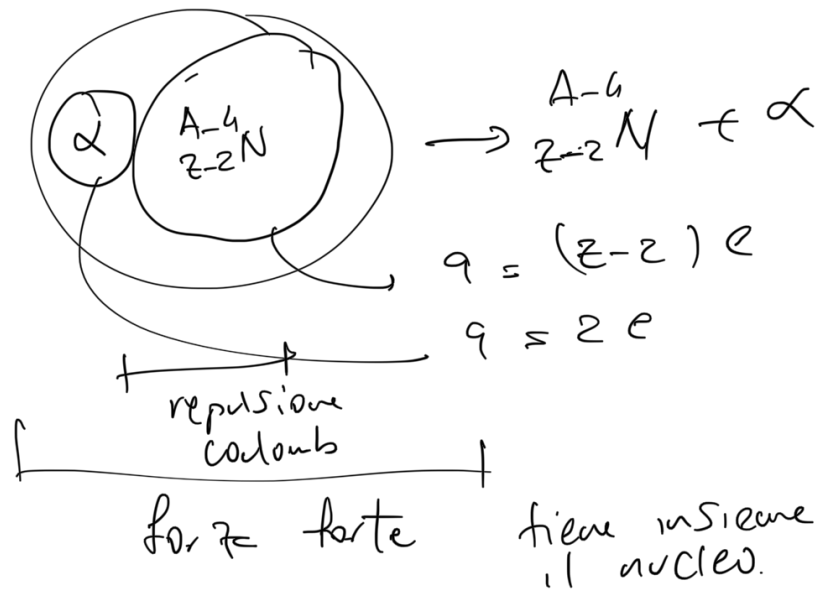 α A-4 Z-2 N → A-4 Z-2 N + α
q = (z-2) e
q = 2 e
repulsione
coulomb
forza forte tiene insieme
il nucleo.